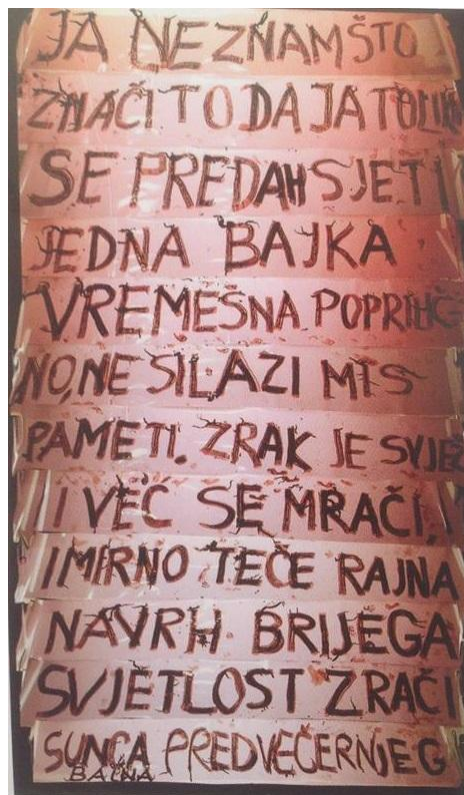 JA NE ZNAM ŠTO
ZNAČI TO DA JA TOLIK
SE PREDAH SJETI
JEDNA BAJKA
VREMEŠNA POPRILIČ-
NO, NE SILAZI MI S
PAMETI. ZRAK JE SVJEŽ
I VEĆ SE MRAČI,
I MIRNO TEČE RAJNA
NAVRH BRIJEGA
SVJETLOST ZRAČI
SUNCA PREDVEČERNJEG
BAJNA